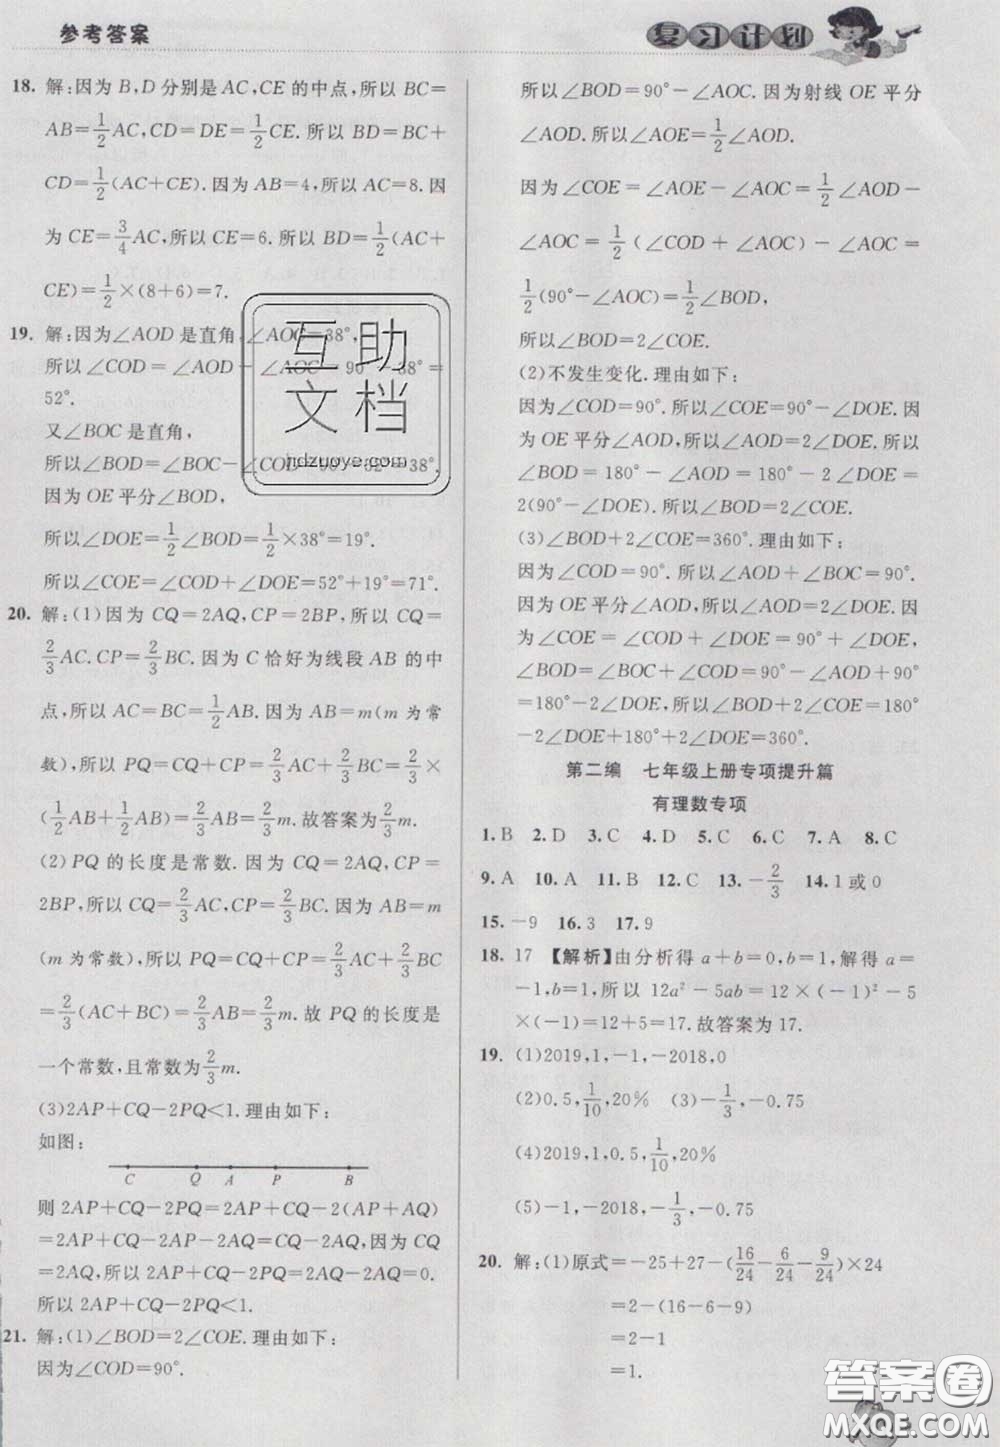 参考答案
复习计划
18. 解:因为B,D分别是AC,CE的中点,所以BC=
AB=1/2AC,CD=DE=1/2CE.所以BD=BC+
CD=1/2(AC+CE).因为AB=4,所以AC=8.因
为CE=3/4AC,所以CE=6.所以BD=1/2(AC+
CE)=1/2×(8+6)=7.
19. 解:因为∠AOD是直角,∠AOC=38°,
所以∠COD=∠AOD-∠AOC=90°-38°=
52°.
又∠BOC是直角,
所以∠BOD=∠BOC-∠COD=38°.
因为OE平分∠BOD,
所以∠DOE=1/2∠BOD=1/2×38°=19°.
所以∠COE=∠COD+∠DOE=52°+19°=71°.
20. 解:(1)因为CQ=2AQ,CP=2BP,所以CQ=
2/3AC.CP=2/3BC.因为C恰好为线段AB的中
点,所以AC=BC=1/2AB.因为AB=m(m为常
数),所以PQ=CQ+CP=2/3AC+2/3BC=2/3×
(1/2AB+1/2AB)=2/3AB=2/3m.故答案为2/3m.
(2)PQ的长度是常数.因为CQ=2AQ,CP=
2BP,所以CQ=2/3AC,CP=2/3BC.因为AB=m
(m为常数),所以PQ=CQ+CP=2/3AC+2/3BC
=2/3(AC+BC)=2/3AB=2/3m.故PQ的长度是
一个常数,且常数为2/3m.
(3)2AP+CQ-2PQ<1.理由如下:
如图:
C Q A P B
则2AP+CQ-2PQ=2AP+CQ-2(AP+AQ)
=2AP+CQ-2AP-2AQ=CQ-2AQ.因为CQ
=2AQ,所以2AP+CQ-2PQ=2AQ-2AQ=0.
所以2AP+CQ-2PQ<1.
21. 解:(1)∠BOD=2∠COE.理由如下:
因为∠COD=90°.
所以∠BOD=90°-∠AOC.因为射线OE平分
∠AOD.所以∠AOE=1/2∠AOD.
因为∠COE=∠AOE-∠AOC=1/2∠AOD-
∠AOC=1/2(∠COD+∠AOC)-∠AOC=
1/2(90°-∠AOC)=1/2∠BOD,
所以∠BOD=2∠COE.
(2)不发生变化.理由如下:
因为∠COD=90°.所以∠COE=90°-∠DOE.因
为OE平分∠AOD,所以∠AOD=2∠DOE.所以
∠BOD=180°-∠AOD=180°-2∠DOE=
2(90°-∠DOE),所以∠BOD=2∠COE.
(3)∠BOD+2∠COE=360°.理由如下:
因为∠COD=90°,所以∠AOD+∠BOC=90°.
因为OE平分∠AOD,所以∠AOD=2∠DOE.因
为∠COD=90°,所以∠COE=90°+∠DOE,
∠BOD=∠BOC+∠COD=90°-∠AOD+90°
=180°-2∠DOE,所以∠BOD+2∠COE=180°
-2∠DOE+180°+2∠DOE=360°.
第二编 七年级上册专项提升篇
有理数专项
1. B 2. D 3. C 4. D 5. C 6. C 7. A 8. C
9. A 10. A 11. B 12. C 13. -2/3 14. 1或0
15. -9 16. 3 17. 9
18. 17 【解析】由分析得a+b=0,b=1,解得a=
-1,b=1,所以12a²-5ab=12×(-1)²-5
×(-1)=12+5=17.故答案为17.
19. (1)2019,1,-1,-2018,0
(2)0.5,1/10,20% (3)-1/3,-0.75
(4)2019,1,0.5,1/10,20%
(5)-1,-2018,-1/3,-0.75
20. 解:(1)原式=-25+27-(16/24-6/24-9/24)×24
=2-(16-6-9)
=2-1
=1.
互助
文档
hdzuoye.com
答案圈
MXQE.COM